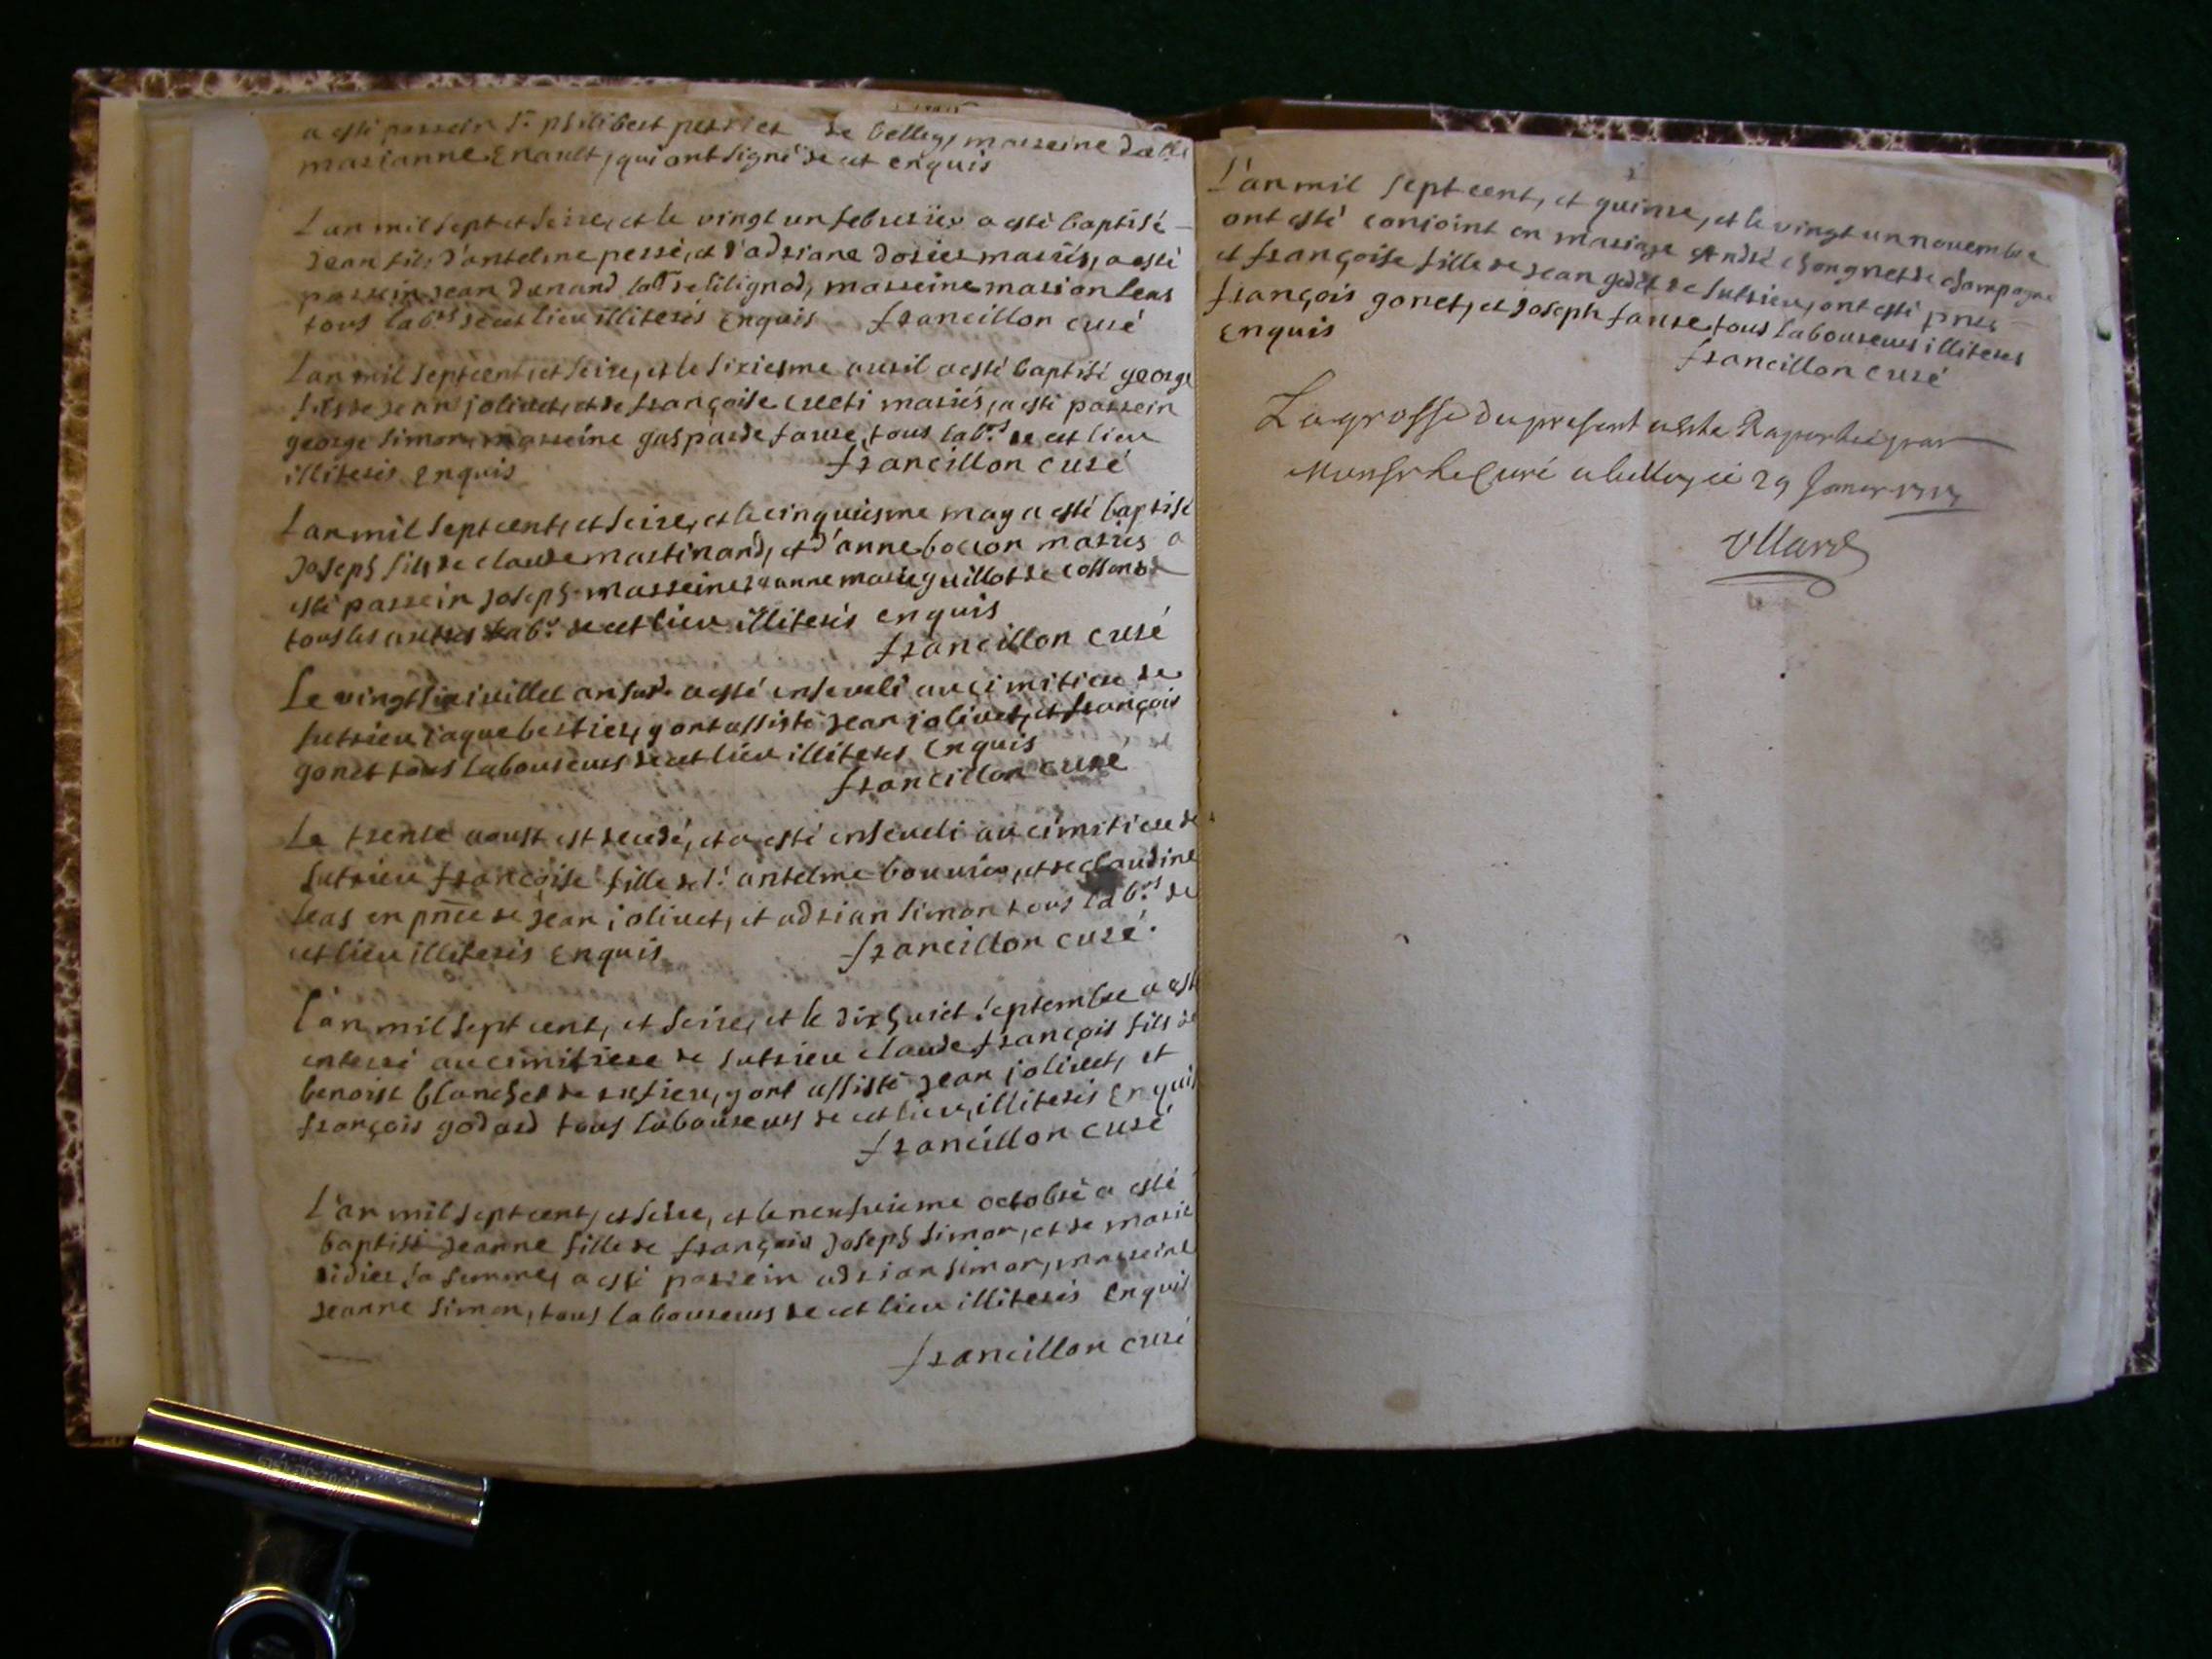 a esté parrein Sr philibert perrier de belley, marreine dalle
marianne Enault, qui ont signé de ce enquis
L'an mil sept et seize, et le vingt un febvrier a esté baptisé
Jean fils d'antelme perré, et d'adriane dorier mariés, a esté
parrein jean dunand labr de lilignod, marreine marion leas
tous labrs de cet lieu illiterés enquis francillon curé
L'an mil sept cent, et seize, et le sixiesme avril a esté baptisé george
fils de jean jolivet, et de françoise creti mariés, a esté parrein
george simon, marreine gasparde favre, tous labrs de cet lieu
illiterés Enquis francillon curé
L'an mil sept cent, et seize, et le cinquiesme may a esté baptisé
Joseph fils de claude martinand, et d'anne bocion mariés a
esté parrein joseph marreine jeanne marie guillot de
tous les autres labrs de cet lieu illiterés enquis
francillon curé
Le vingt six iuillet an sud. a esté enseveli au cimitiere de
sutrieu iaque bertier, y ont assisté jean jolivet, et françois
gonet tous laboureurs de cet lieu illiteres Enquis
francillon curé
Le trente aoust est decedé, et a esté enseveli au cimitiere de
sutrieu françoise fille de Sr antelme bouvier, et de claudine
leas en pnce de jean jolivet, et adrian simon tous labrs de
cet lieu illiterés Enquis francillon curé.
L'an mil sept cent, et seize, et le dixhuict septembre a esté
enterré au cimitiere de sutrieu claude françois fils de
benoist blanchet de rufieu, y ont assisté jean jolivet, et
françois godard tous laboureurs de cet lieu, illiterés Enquis
francillon curé
L'an mil sept cent, et seize, et le neufvieme octobre a esté
baptisé jeanne fille de françois joseph simon, et de marie
didier sa femme, a esté parrein adrian simon, marreine
jeanne simon, tous laboureurs de cet lieu illiterés Enquis
francillon curé
L'an mil sept cent, et quinze, et le vingt un novembre
ont esté conjoint en mariage André chongnet de champagne
et françoise fille de jean godet de sutrieu, ont esté pnts
françois gonet, et joseph favre tous laboureurs illiteres
Enquis
francillon curé
La grosse du present a esté Raportée par
Monsr le Curé a belley ce 29 Janer 1717
Ullard